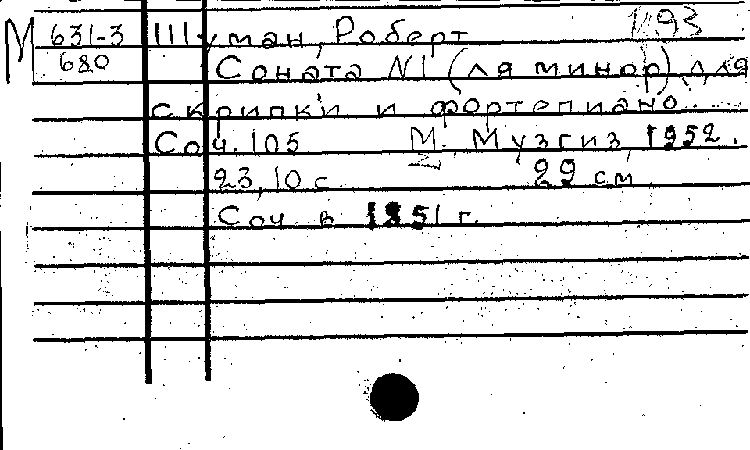 М 631-3 Шуман, Роберт
680 Соната N1 (ля минор) для
скрипки и фортепиано.
Соч. 105 М. Музгиз, 1952.
23, 10 с 29 см
Соч в 1851 г.